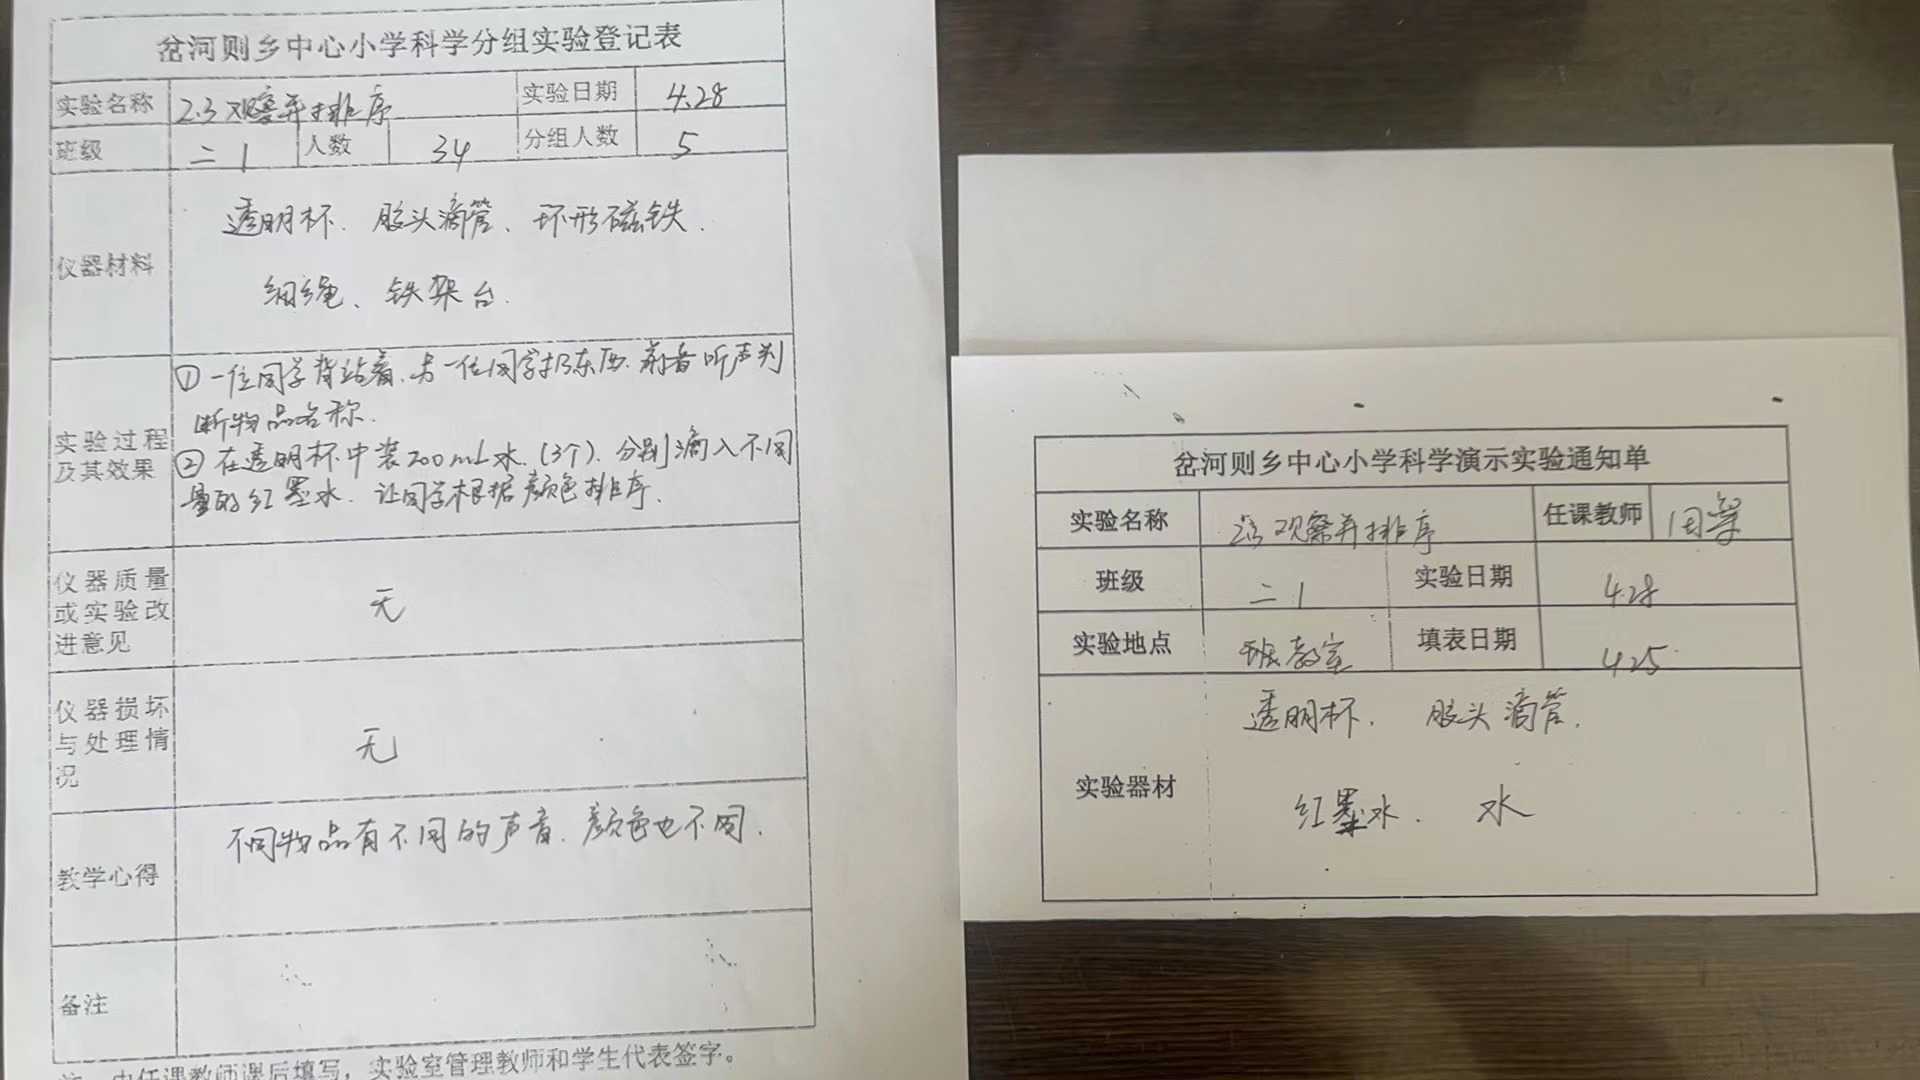 岔河则乡中心小学科学分组实验登记表
实验名称 2.3 观察并排序 实验日期 4.28
班级 二 1 人数 34 分组人数 5
仪器材料
透明杯、胶头滴管、环形磁铁、
细绳、铁架台.
实验过程
及其效果
①一位同学背站着,另一位同学扔东西,前者听声判
断物品名称.
②在透明杯中装200mL水(3个).分别滴入不同
量的红墨水.让同学根据颜色排序.
仪器质量
或实验改
进意见
无
仪器损坏
与处理情
况
无
教学心得
不同物品有不同的声音.颜色也不同.
备注
由任课教师课后填写,实验室管理教师和学生代表签字。
岔河则乡中心小学科学演示实验通知单
实验名称 2.3 观察并排序 任课教师
班级 二 1 实验日期 4.28
实验地点 班教室 填表日期 4.25
实验器材
透明杯. 胶头滴管.
红墨水. 水